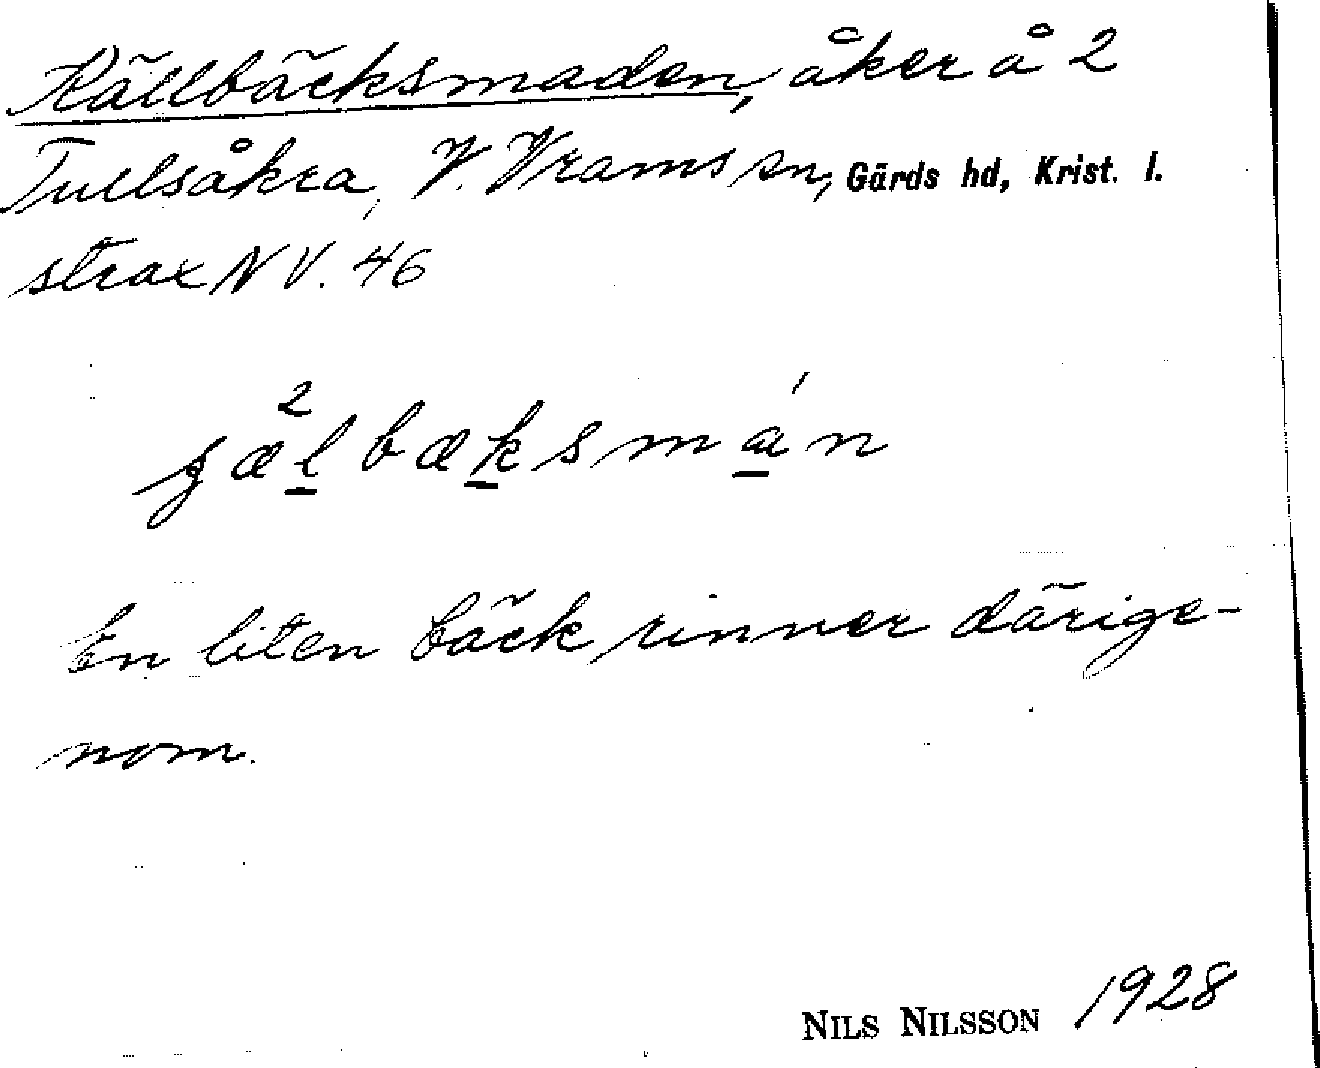 Källbäcksmaden, åker å 2
Tullsåkra, V. Vrams sn, Gärds hd, Krist. l.
strax N V. 46
2
bæksmán
En liten bäck rinner därige-
nom.
NILS NILSSON 1928